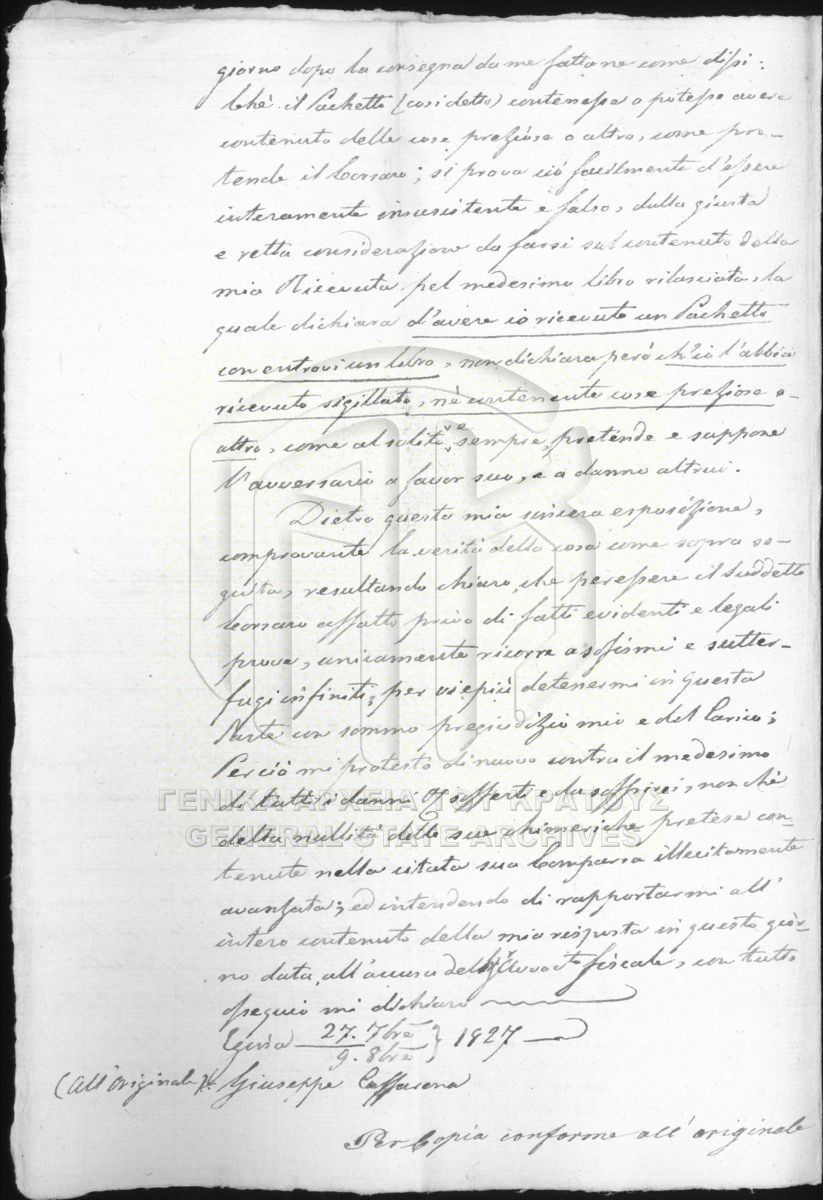 giorno dopo la consegna da me fattane come dissi:
Chè il Pachetto (così detto) contenesse o potesse avere
contenuto delle cose preziose o altro, come pre-
tende il Corsaro; si prova ciò facilmente d'essere
interamente insussistente e falso, dalla giusta
e retta considerazione da farsi sul contenuto della
mia Ricevuta pel medesimo libro rilasciata, la
quale dichiara d'avere io ricevuto un Pachetto
con entrovi un libro, non dichiara però ch'io l'abbia
ricevuto sigillato, nè contenente cose preziose o
altro, come al solito e sempre pretende e suppone
l'avversario a favor suo, e a danno altrui.
Dietro questa mia sincera esposizione,
comprovante la verità della cosa come sopra se-
guita, resultando chiaro, che per essere il suddetto
Corsaro affatto privo di fatti evidenti e legali
prove, unicamente ricorre a sofismi e sutter-
fugi infiniti, per viepiù detenermi in questa
Parte con sommo pregiudizio mio e del Carico;
Perciò mi protesto di nuovo contro il medesimo
di tutti i danni sofferti e da soffrirsi, non chè
della nullità delle sue chimeriche pretese con-
tenute nella citata sua Comparsa illecitamente
avanzata; ed intendendo di rapportarmi all'
intero contenuto della mia risposta in questo gior-
no data, all'accusa dell' Avvocto fiscale, con tutto
ossequio mi dichiaro
Egina 27. 7bre / 9. 8bre } 1827
(all'originale) Giuseppe
Per Copia conforme all'originale
ΓΕΝΙΚΑ ΑΡΧΕΙΑ ΤΟΥ ΚΡΑΤΟΥΣ
GENERAL STATE ARCHIVES